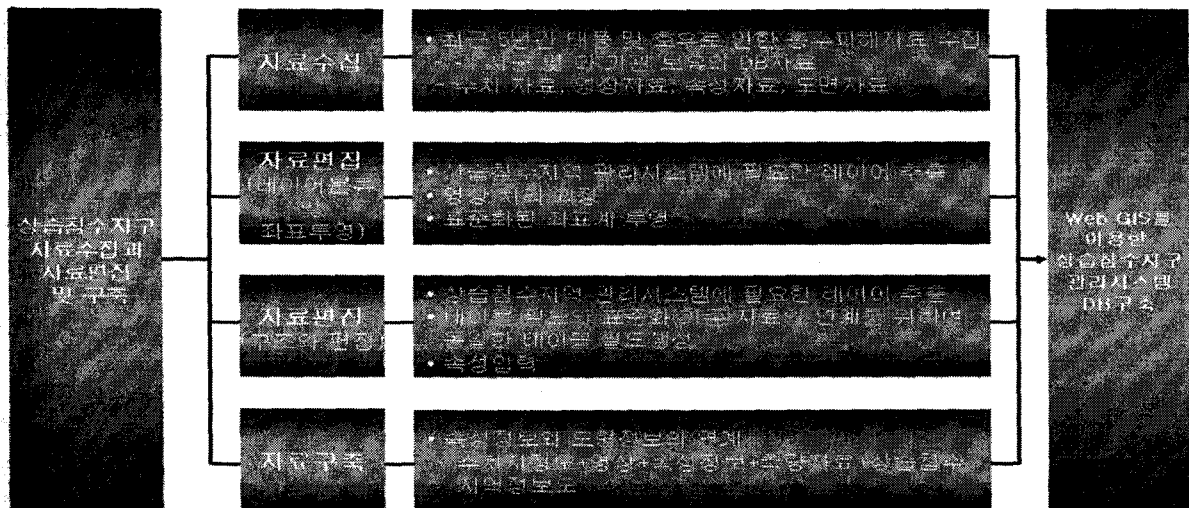 상습침수지구
자료수집과
자료편집
및 구축
자료수집
• 최근 5년간 태풍 및 호우로 인한 홍수피해자료 수집
및 각 기관 보유의 DB자료
- 수치 자료, 영상자료, 속성자료, 도면자료
자료편집
(레이어분류
좌표투영)
• 상습침수지역 관리시스템에 필요한 레이어 추출
• 영상 처리 과정
• 표준화된 좌표계 투영
자료편집
구조화 편집
• 상습침수지역 관리시스템에 필요한 레이어 추출
• 테이블 필드의 표준화 자료의 연계를 위하여
동일한 테이블 필드생성
• 속성입력
자료구축
• 속성정보와 도형정보의 연계
- 수치지형도+영상+속성정보+측량자료+상습침수
지역정보도
Web GIS를
이용한
상습침수지구
관리시스템
DB구축